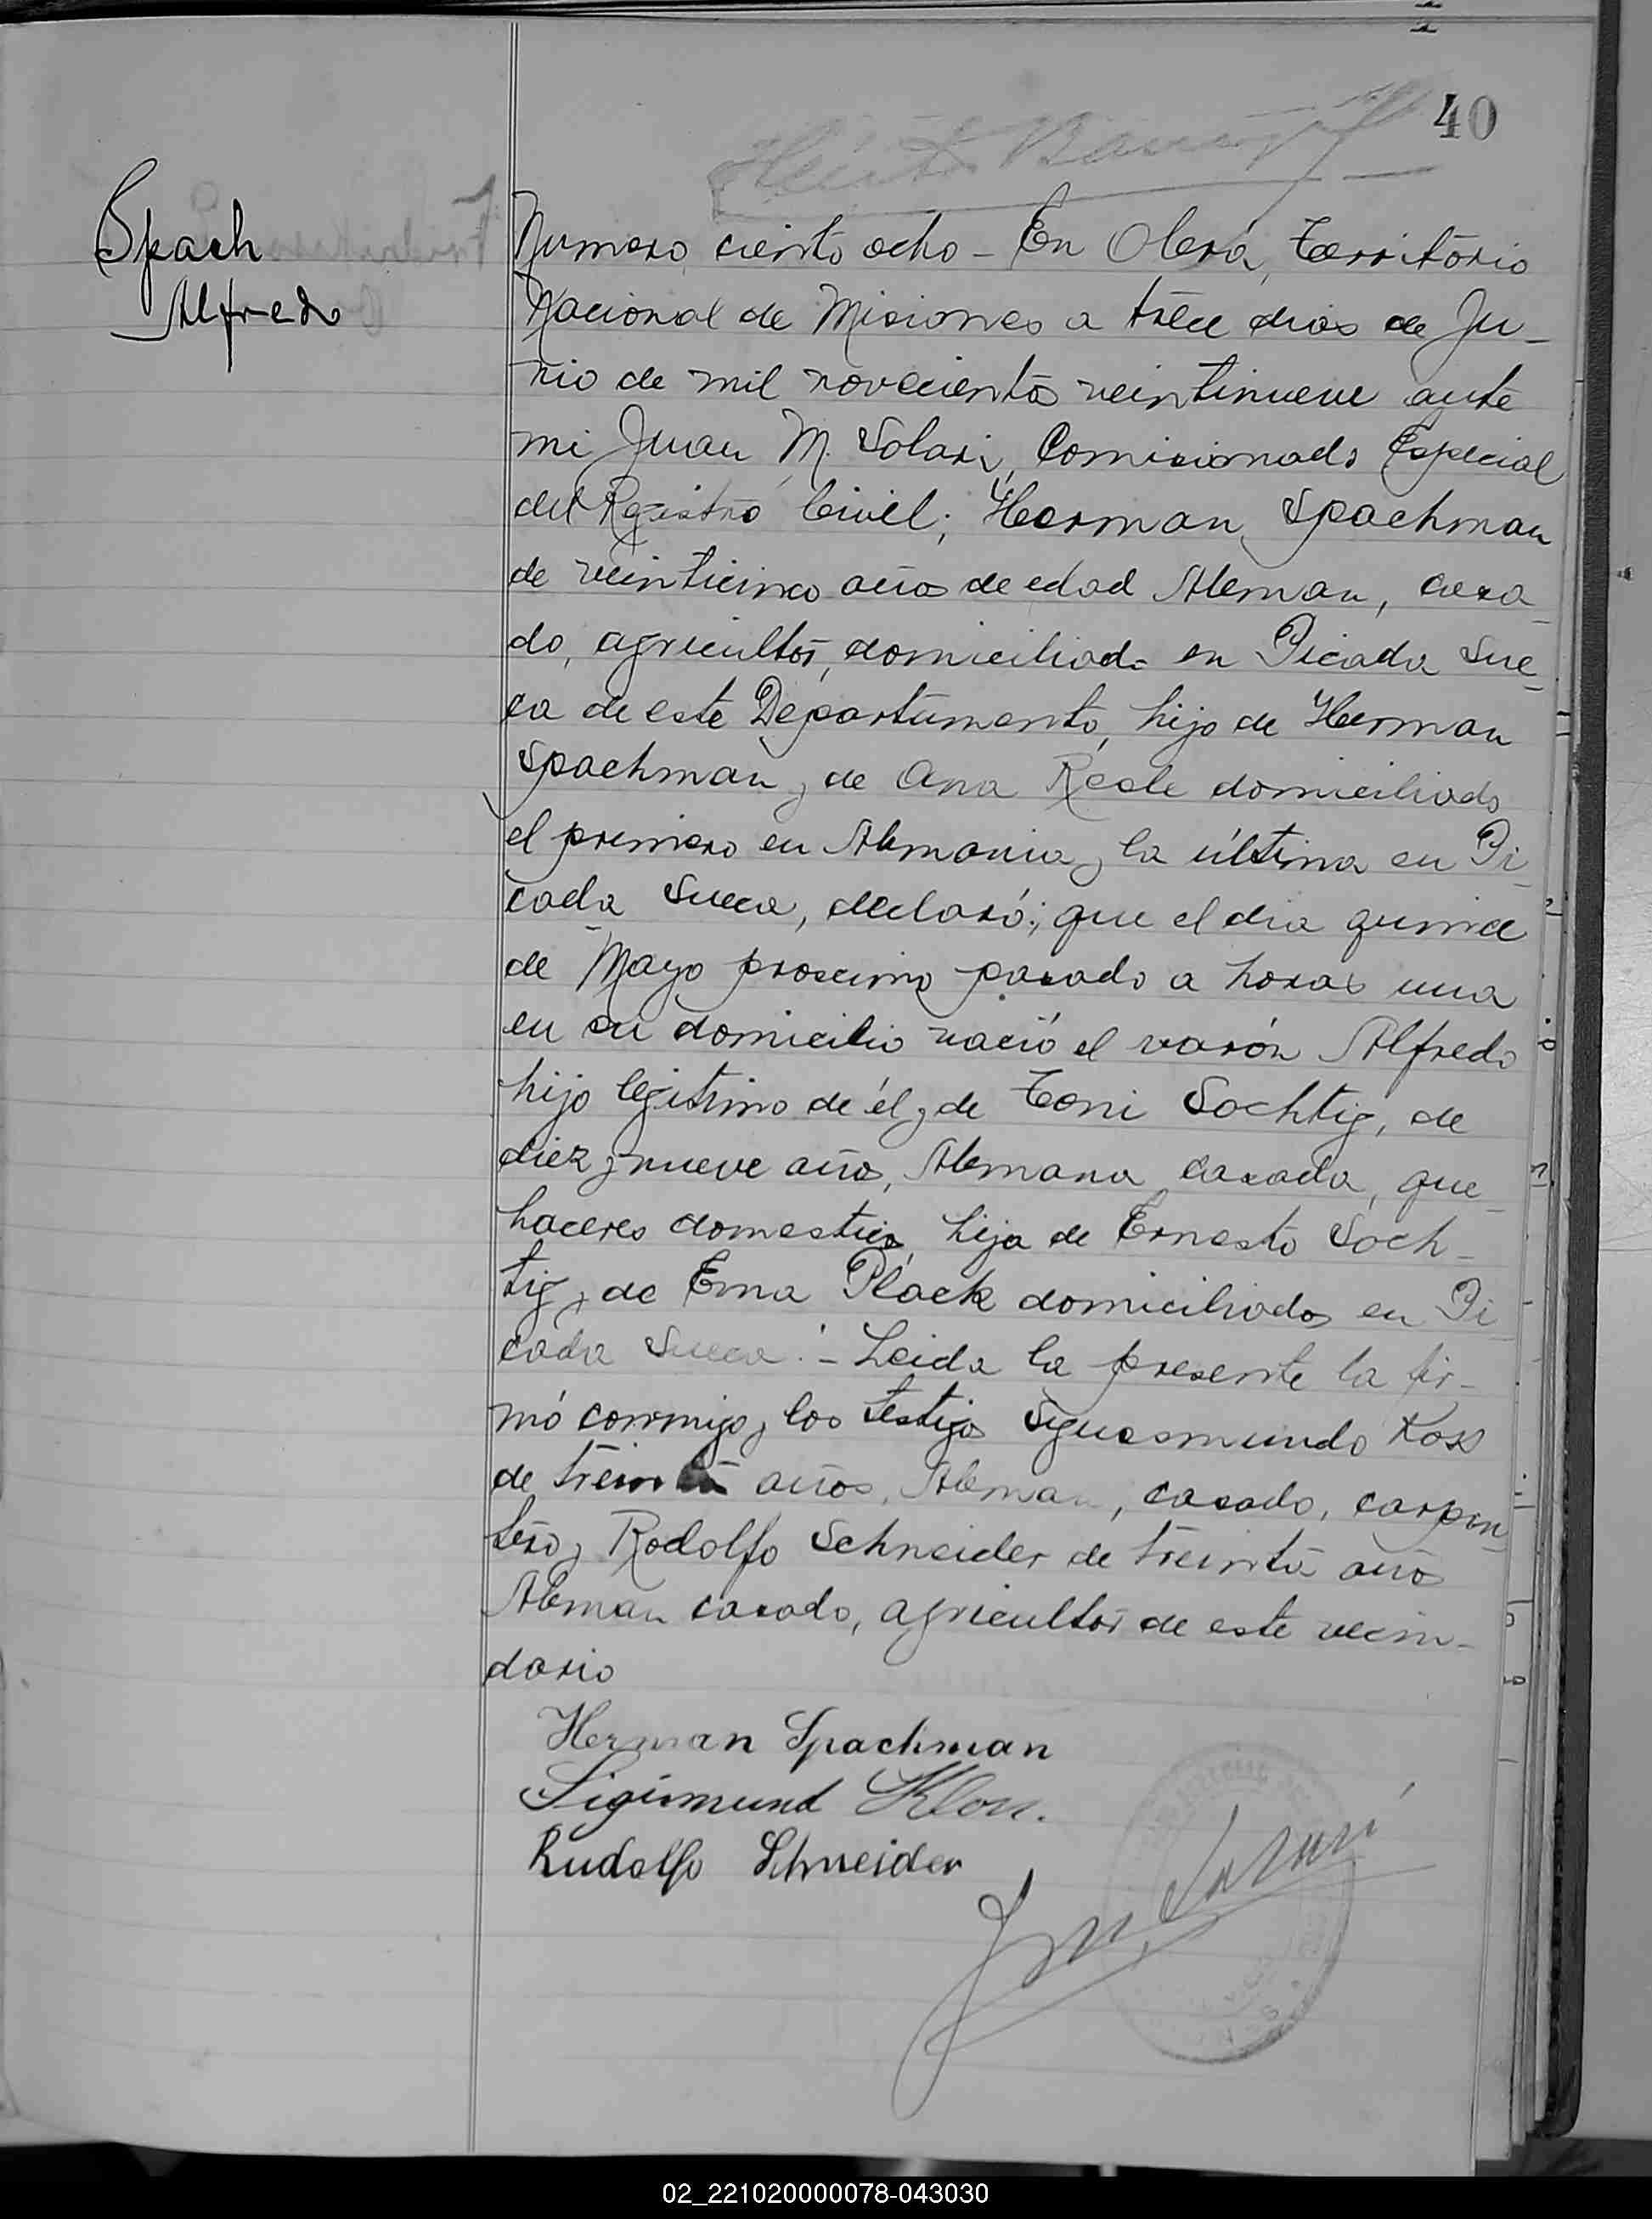 40
Spach
Alfredo
Numero ciento ocho - En Oberá, Território
Nacional de Misiones a trece dias de Ju-
nio de mil novecientos veintinueve ante
mi Juan M. Solari, Comisionado Especial
del Registro Civil; Herman Spachman
de veinticinco años de edad Aleman, casa-
do, agricultor, domiciliado en Picada Sue-
ca de este Departamento, hijo de Herman
Spachman y de Ana Reole domiciliados
el primero en Alemania y la última en Pi-
cada Sueca, declaró; que el dia quince
de Mayo proximo pasado a horas una
en su domicilio nació el varón Alfredo
hijo legitimo de él y de Toni Sochtig, de
diez y nueve años, Alemana, casada, que-
haceres domesticos, hija de Ernesto Soch-
tig y de Ema Plack domiciliados en Pi-
cada Sueca. - Leida la presente la fir-
mó conmigo y los testigos Siguesmundo
de treinta años, Aleman, casado, carpin-
tero y Rodolfo Schneider de treinta años
Aleman casado, agricultor de este vecin-
dario
Herman Spachman
Sigismund
Rudolfo Schneider
02_221020000078-043030